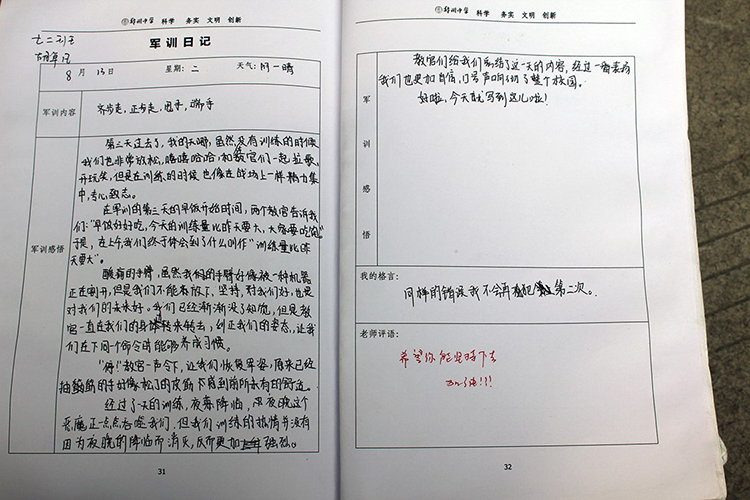 郑州中学 科学 务实 文明 创新
军训日记
七二刘玉
8月13日 星期：二 天气：阴—晴
军训内容
齐步走，正步走，甩手，踢手
军训感悟
第三天过去了，我的天哪，虽然没有训练的时候
我们也非常放松，嘻嘻哈哈，和教官们一起拉歌、
开玩笑，但是在训练的时候也像在战场上一样精力集
中，专心致志。
在军训的第三天的早饭开始时间，两个教官告诉我
们：“早饭好好吃，今天的训练量比昨天要大，大家要吃饱”
于是，在上午，我们终于体会到了什么叫作“训练量比昨
天要大”。
酸痛的手臂，虽然我们的手臂好像被一种机器
正在割开，但是我们不能看放下，坚持，对我们好，也是
对我们的未来好。我们已经渐渐没了知觉，但是教
官一直在我们的身体转来转去，纠正我们的姿态，让我
们在下同一个命令时能够养成习惯。
“停”教官一声令下，让我们恢复军姿，原来已经
抽筋的手好像松了的皮筋下感到前所未有的舒适。
经过了一天的训练，夜幕降临，深夜晚这个
恶魔正一点点吞噬我们，但我们训练的热情并没有
因为夜晚的降临而消灭，反而更加强烈。
31
郑州中学 科学 务实 文明 创新
军训感悟
教官们给我们总结了这一天的内容，经过一番表扬
我们也更加自信，口号声响彻了整个校园。
好啦，今天就写到这儿啦！
我的格言：
同样的错误我不会再犯第二次。
老师评语：
希望你能坚持下去
加油!!!
32